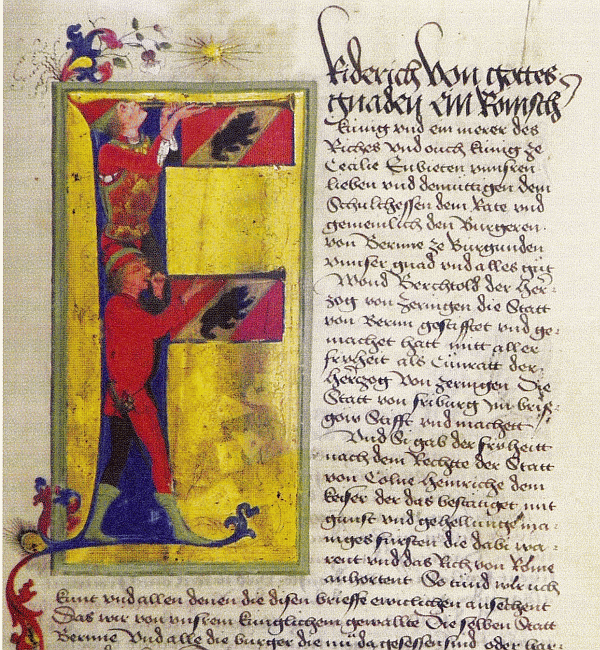 Friderich von gottes
gnaden ein Romsch
kúnig vnd ein merer des
Riches vnd ouch kúnig ze
Cecilie Enbieten vnnsren
lieben vnd demuttigen dem
Schultheſsen dem Rate vnd
gemeinlich den Burgeren
von Bernne ze Burgunden
vnnser gnad vnd alles gůt
Wond Berchtold der Her-
zog von Zeringen die Statt
von Bernn gestifftet vnd ge-
machet hatt mitt aller
fryheit als Cůnratt der
Hertzog von Zeringen Die
Statt von friburg Inn briſ-
gow Stifft vnd machett
Vnd Si gab der fryheitt
nach dem Rechte der Statt
von Colne Heinriche dem
keiser der das bestätiget mit
gunst vnd gehellunge ma-
niges fürsten die dabi wa-
rent vnd das Rich von Rome
anhortent So tund wir úch
kunt vnd allen denen die disen brieffe ewenclichen ansechent
Das wir von vnsrem kunglichem gewallte Die selben Statt
Bernne Vnd alle die burger die nu da gesessen sind oder har-